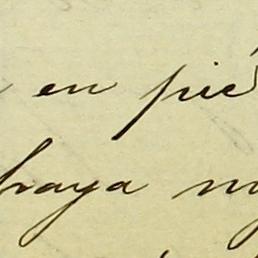 en pié
haya